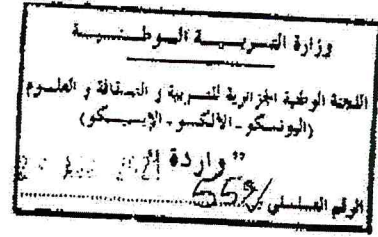 وزارة التربية الوطنية
اللجنة الوطنية الجزائرية للتربية و الثقافة و العلوم
(اليونسكو - الألكسو - الإيسيكو)
" واردة "
الرقم التسلسلي 559/